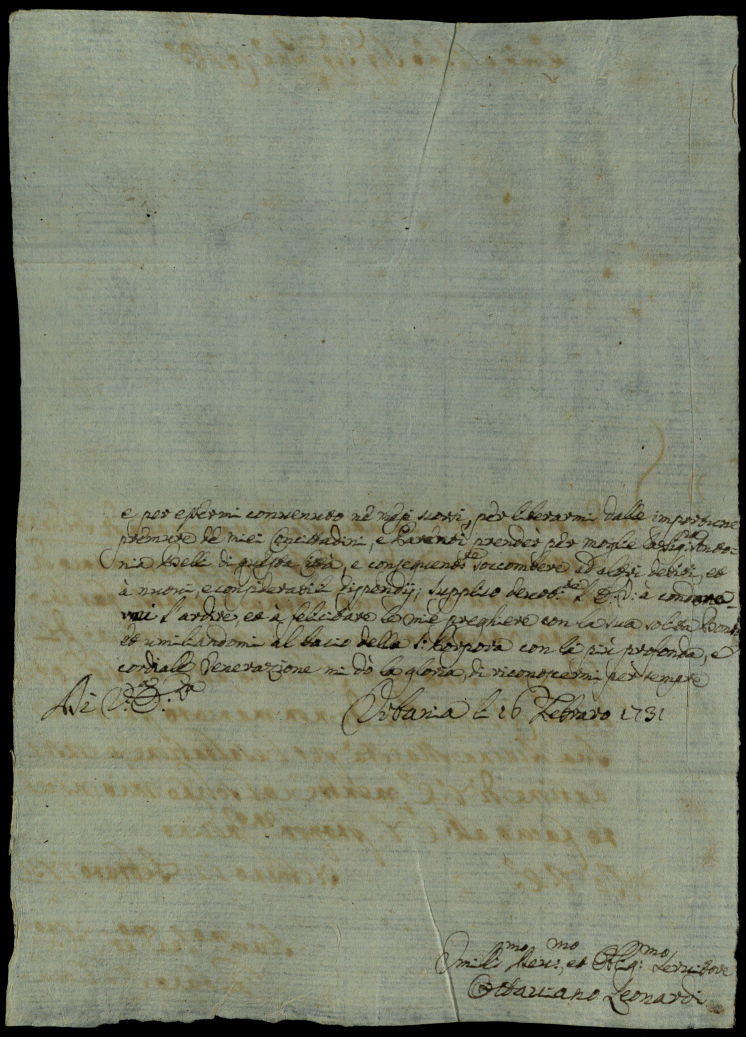 e per essermi convenuto ne mesi scorsi, per liberarmi dalle importune
premure de miei Concittadini, e Parenti prender per moglie la Sig.ra Anto-
nia Belli di questa Città, e conseguentem.te soccombere ad altri debiti, et
à nuovi, e considerabili dispendij; supplico V.E. à condonar-
mi l'ardire, et à felicitare le mie preghiere con la sua solita Bontà
et umiliandomi al bacio della S. Porpora con la più profonda, e
cordiale Venerazione mi dò la gloria, di riconoscermi per sempre
Di V.
Urbania li 26 Febraro 1731
Umiliss.mo et Oblig.mo Servitore
Ottaviano Leonardi